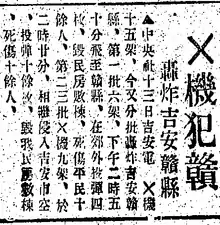 ×機犯贛
轟炸吉安贛縣
▲中央社十三日吉安電 ×機
十五架、今又分批轟炸吉安贛
縣、第一批六架、下午二時五
十分飛至贛縣、在郊外投彈四
枚、毀民房數棟、死傷平民十
餘人、第二三批×機九架、於
二時廿分、相繼侵入吉安市空
投彈十餘枚、毀我民房數棟
、死傷十餘人、